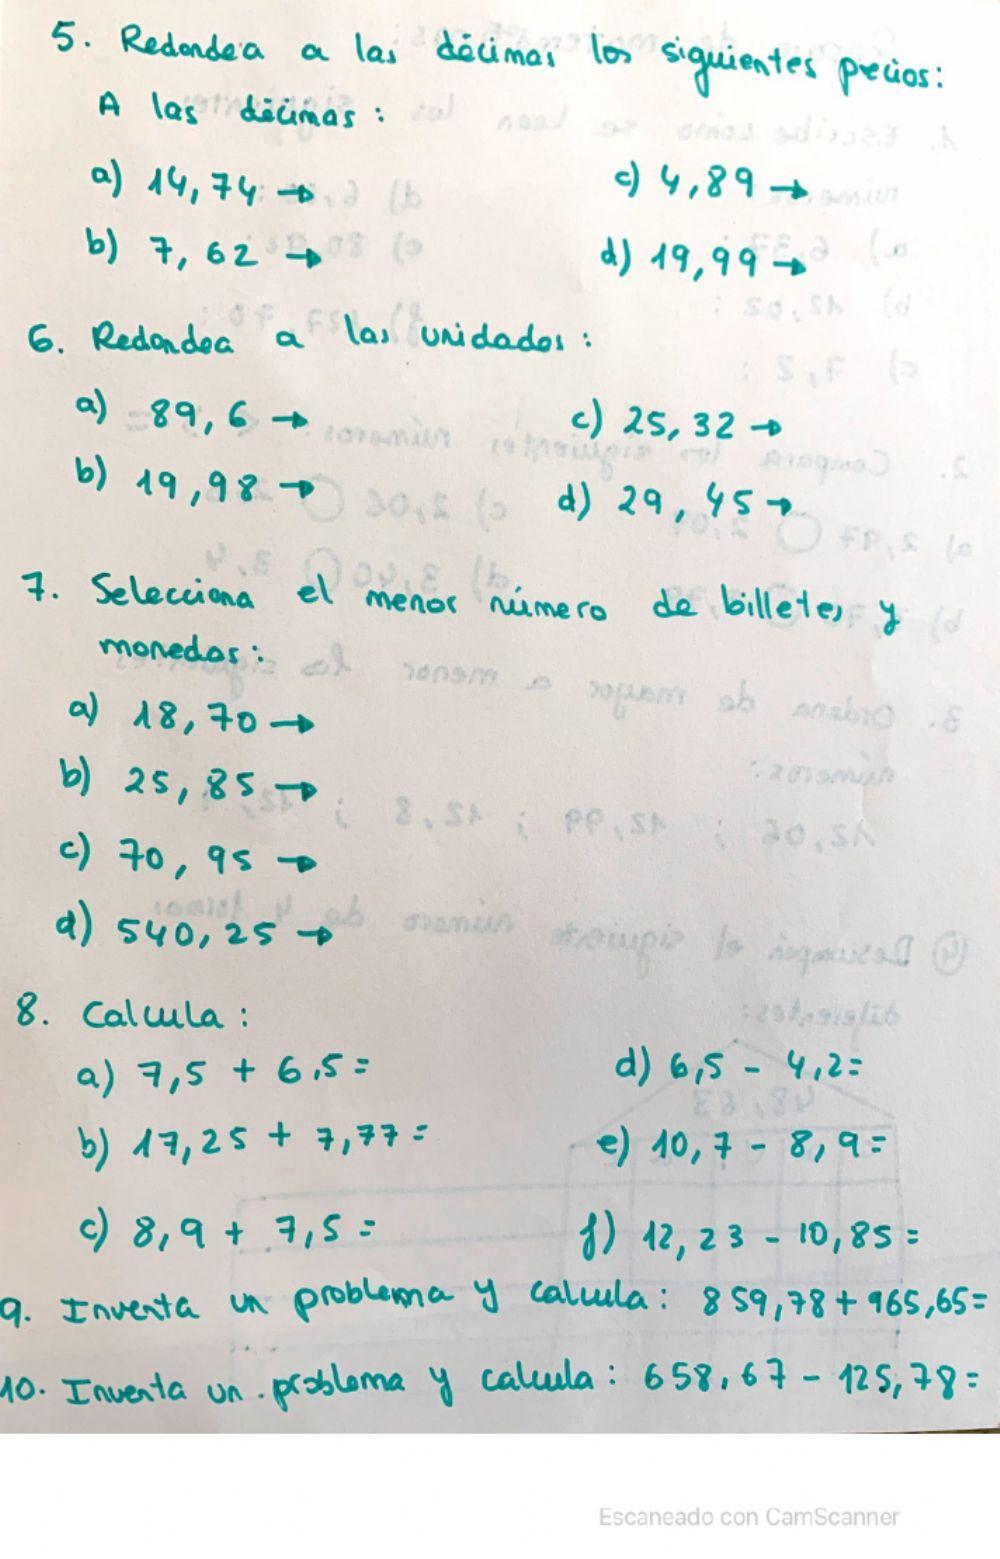 5. Redondea a las décimas los siguientes precios:
A las décimas:
a) 14,74 →
c) 4,89 →
b) 7,62 →
d) 19,99 →
6. Redondea a las unidades:
a) 89,6 →
c) 25,32 →
b) 19,98 →
d) 29,45 →
7. Selecciona el menor número de billetes y
monedas:
a) 18,70 →
b) 25,85 →
c) 70,95 →
d) 540,25 →
8. Calcula:
a) 7,5 + 6,5 =
d) 6,5 - 4,2 =
b) 17,25 + 7,77 =
e) 10,7 - 8,9 =
c) 8,9 + 7,5 =
f) 12,23 - 10,85 =
9. Inventa un problema y calcula: 859,78 + 965,65 =
10. Inventa un problema y calcula: 658,67 - 125,78 =
Escaneado con CamScanner